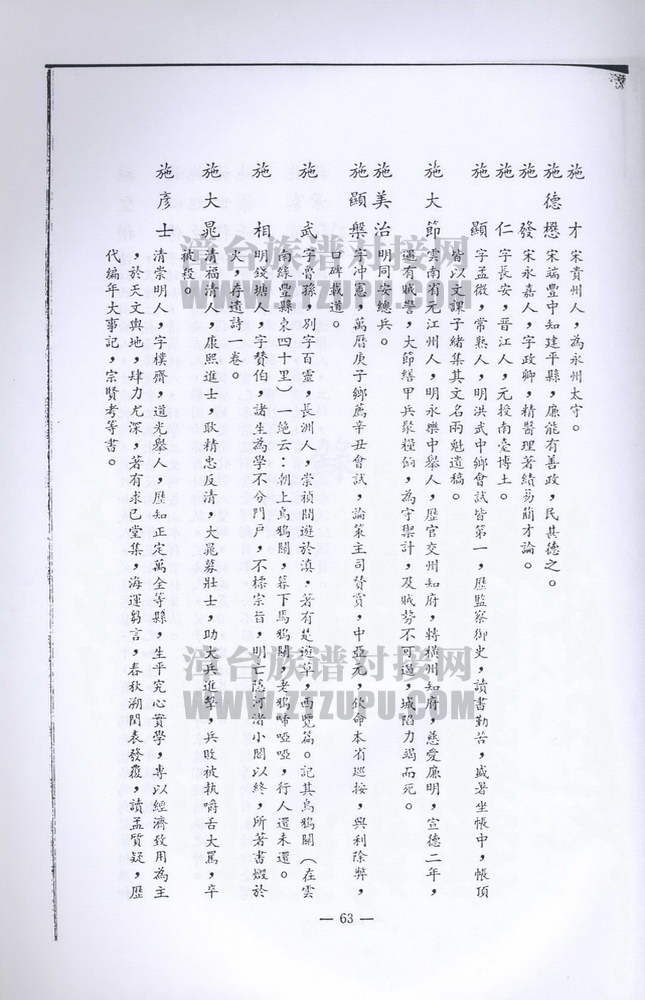 施才 宋貴州人，為永州太守。
施德懋 宋端豐中知建平縣，廉能有善政，民其德之。
施發 宋永嘉人，字政卿，精醫理著績易簡才論。
施仁 字長安，晋江人，元授南臺博士。
施顯 字孟微，常熟人，明洪武中鄉會試皆第一，歷監察御史，讀書勤苦，盛暑坐帳中，帳頂
皆以文課子緒集其文名兩魁遺稿。
施大節 雲南省元江州人，明永樂中舉人，歷官交州知府，特橫州知府，慈愛廉明，宣德二年，
還有賊警，大節繕甲兵聚糧餉，為守禦計，及賊勢不可遏，城陷力竭而死。
施美治 明同安總兵。
施顯槃 字冲憲，萬曆庚子鄉薦辛丑會試，論策主司賛賞，中亞元，欽命本省巡按，興利除弊，
口碑載道。
施武 字魯孫，別字百靈，長洲人，崇禎間遊於滇，著有楚遊草，西覽篇。記其烏鴉關（在雲
南緣豐縣東四十里）一絕云：朝上烏鴉關，暮下馬鴉關，老鴉啼啞啞，行人還未還。
施相 明錢塘人，字賛伯，諸生為學不分門戶，不標宗旨，明亡隱河渚小閣以終，所著書燬於
火，存遺詩一卷。
施大晁 清福清人，康熙進士，耿精忠反清，大晁募壯士，助大兵進擊，兵敗被执嚼舌大罵，卒
被殺。
施彥士 清崇明人，字樸齋，道光舉人，歷知正定萬全等縣，生平究心實學，專以經濟致用為主
，於天文輿地，肆力尤深，著有求已堂集，海運芻言，春秋溯閏表發覆，讀孟質疑，歷
代編年大事記，宗賢考等書。
— 63 —
漳台族谱对接网
WWW.ZTZUPU.COM
漳台族谱对接网
WWW.ZTZUPU.COM